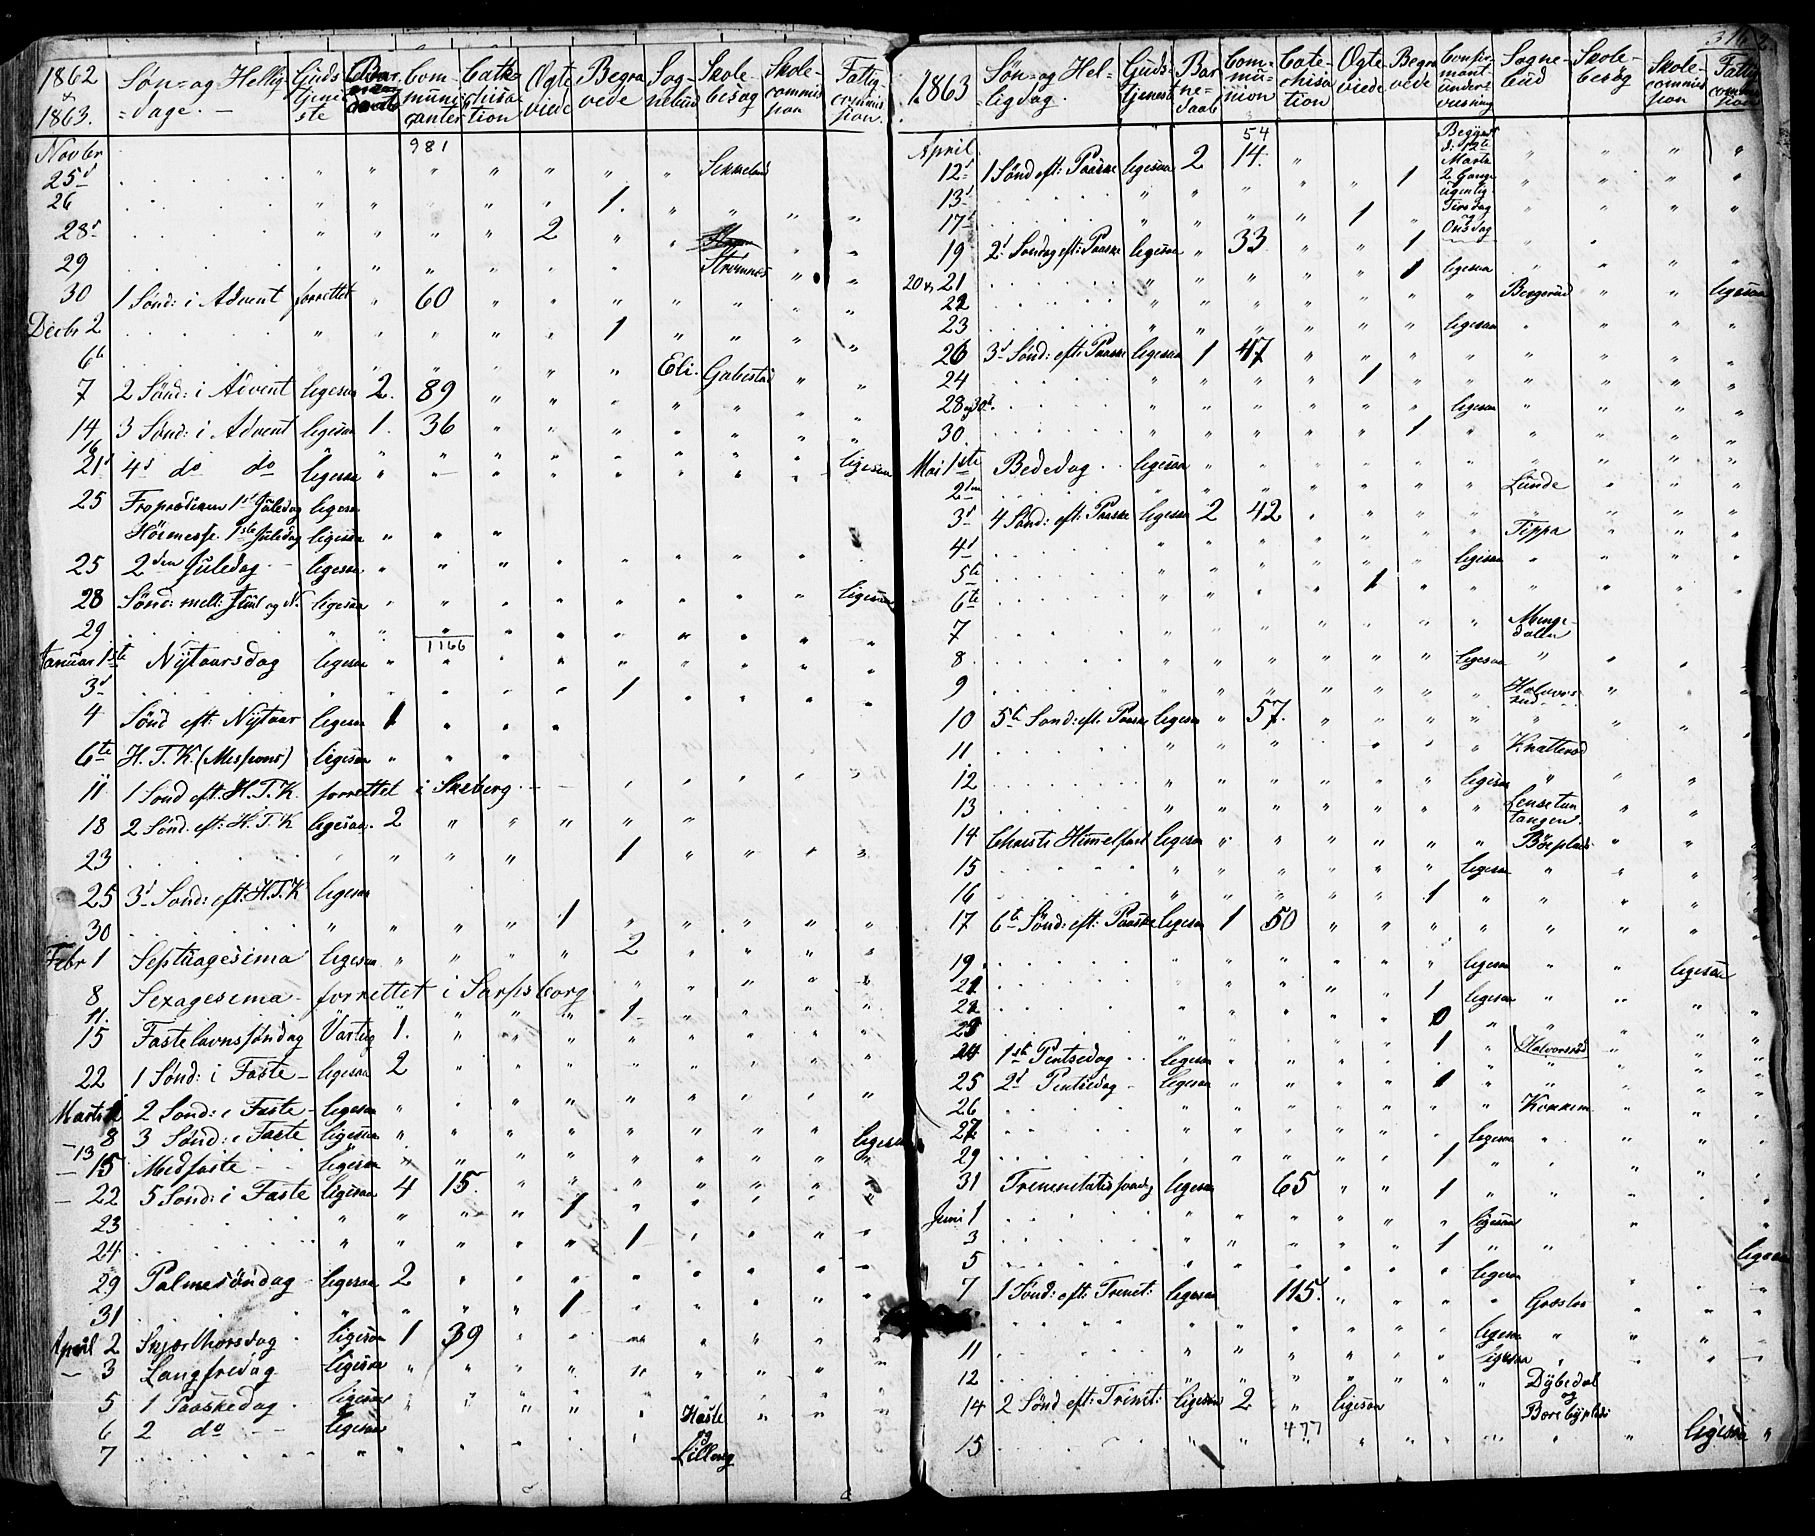 1862 & 1863. Søn- og Hellig=dage. — Guds tjeneste Communicanter Catechisation Ægteviede Begravede Sognebud Skolebesøg Skolecommission Fattigcommission.
Novbr 981
25d
26 1.
28d 2
29 Strømnes
30 1 Sønd: i Advent forrettet " 60
Decbr 2 1
6te Eli. Gabestad
7 2 Sønd: i Advent ligesaa 2. 89
14 3 Sønd: i Advent ligesaa 1. 36
16 ligesaa
21d 4d do do ligesaa
25 Froprædiken 1st Juledag ligesaa
Höimesse 1ste Juledag ligesaa
25 2den Juledag — ligesaa
28 Sønd: mell: Juul og N. ligesaa ligesaa
29
1166
Januar 1ste Nytaarsdag ligesaa
3d 1
4 Sønd eft: Nytaar ligesaa 1
6te H.T.K. ligesaa
11 1 Sønd eft. H.T.K. forrettet i Skeberg.
18 2 Sønd. eft: H.T.K ligesaa. 2
23 1
25 3d Sønd: eft: H.T.K ligesaa
30 1
Febr 1 Septuagesima ligesaa 2
8 Sexagesima — forrettet i Sarpsborg
11. 1
15 Fastelavnssøndag Varteig 1.
22 1 Sønd: i Faste — ligesaa 2
Marts 1 2 Sønd: i Faste — ligesaa
— 8 3 Sønd: i Faste ligesaa
— 13 ligesaa
— 15 Medfaste ligesaa
— 22 5 Sønd: i Faste ligesaa 4 15.
23 1
24 1
29 Palmesöndag — ligesaa 2
31 1
April 2 Skjærthorsdag ligesaa 1 39
— 3 Langfredag ligesaa
5 1 Paaskedag ligesaa
6 2 do — — ligesaa Haste og
7 Lilleng

1863 Søn- og Helligdag. Gudstjeneste Barnedaab Communion Catechisation Ægteviede Begravede Confirmantundervisning Sognebud Skolebesøg Skolecommission Fattigcommission
April 54 Begynt d: 12te Marts 2 Gange ugenlig Tirsdag og Onsdag
12d 1 Sønd eft: Paaske ligesaa 2 14.
13d 1
17d 1
19 2d Søndag eft: Paaske ligesaa " 33 1
20 & 21 1 ligesaa
22 Bergerud ligesaa
23 ligesaa
26 3d Sønd: eft: Paaske ligesaa 1 47
24 1
28 og 30te ligesaa
30 1
Mai 1ste Bededag ligesaa
2den Lunde
3d 4 Sønd: eft: Paaske ligesaa 2 42
4d Tippa
5te ligesaa
6te 1
7 Mengedallen
8 ligesaa
9 Halvorsrud
10 5te Sønd: eft: Paaske ligesaa " 57.
11 Knatterød
12 ligesaa
13 Lensetun tangen
14 Christi Himmelfart ligesaa Böeplads
15 ligesaa
16 1
17 6te Sønd: eft: Paaske ligesaa 1 50
19. ligesaa ligesaa
21 1 ligesaa
22 0
23 1 Halvorsrød
24 1ste Pintsedag ligesaa
25 2d Pintsedag — ligesaa 1
26
27 ligesaa
29 1
31 Trinitatis søndag ligesaa 65 1
Juni 1 ligesaa
3 1
5 ligesaa ligesaa
7 1 Sønd: eft: Trinit: ligesaa 115. Graslos
ligesaa
11 ligesaa
12 Dybedal og
14 2 Sønd eft: Trinit: ligesaa 2 ligesaa
477
15 ligesaa